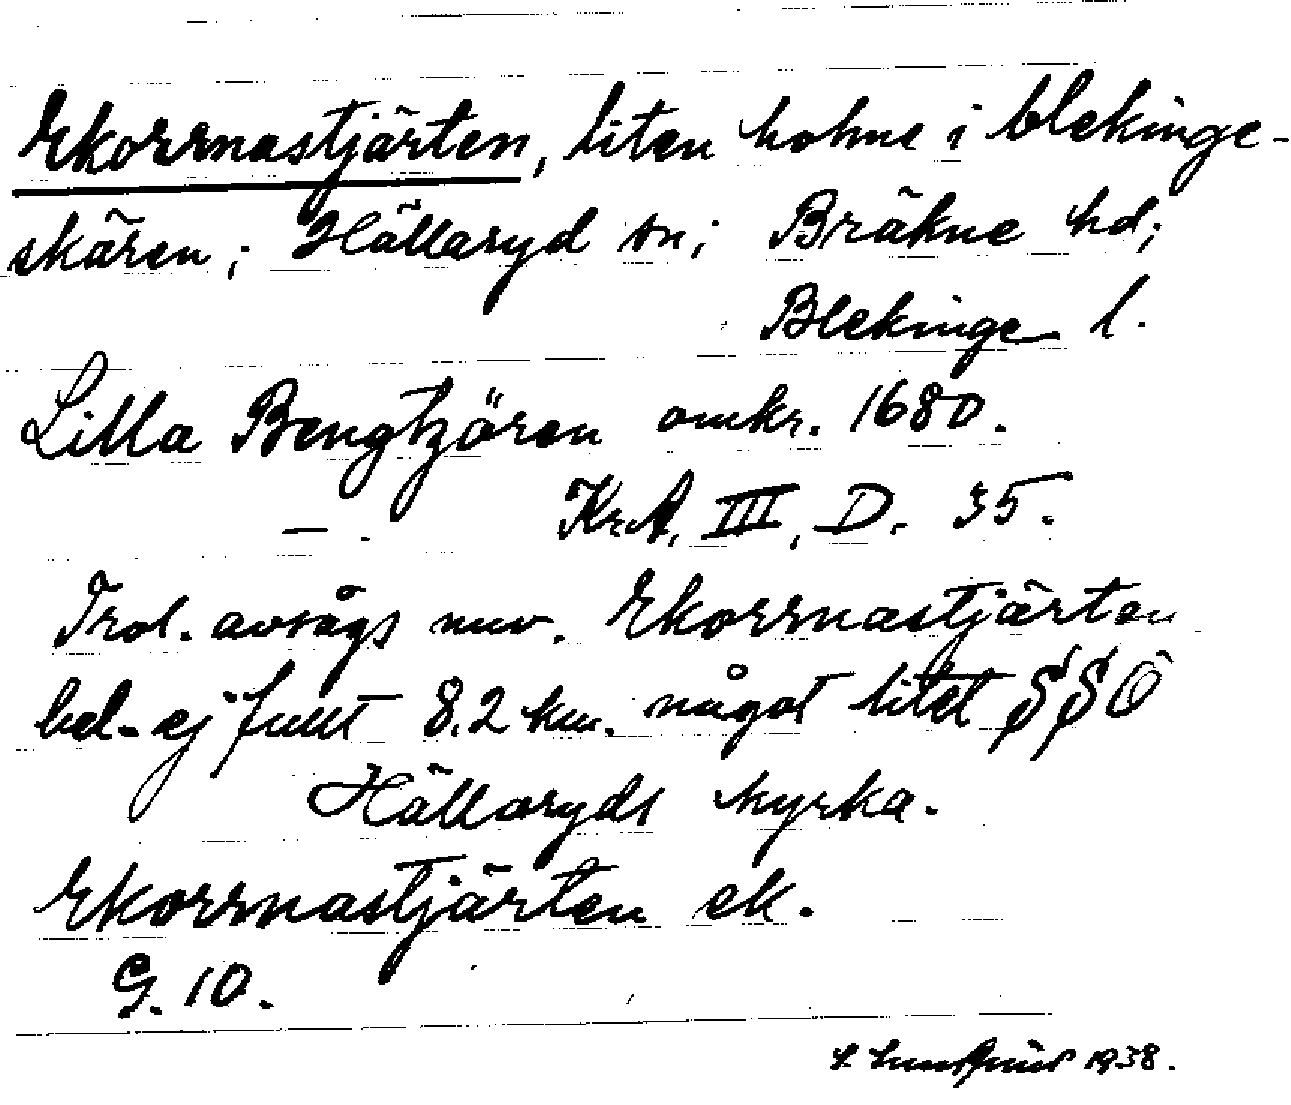 Ekorrnastjärten, liten holme i blekinge-
skären; Hällaryd sn; Bräkne hd;
Blekinge l.
Lilla Bengtzören omkr. 1680.
— . Kr.A. III, D. 35.
Trol. avsågs nuv. Ekorrnastjärten
bel. ej fullt 8.2 km. något litet SSÖ
Hällaryds kyrka.
Ekorrnastjärten ek.
G. 10.
1938.